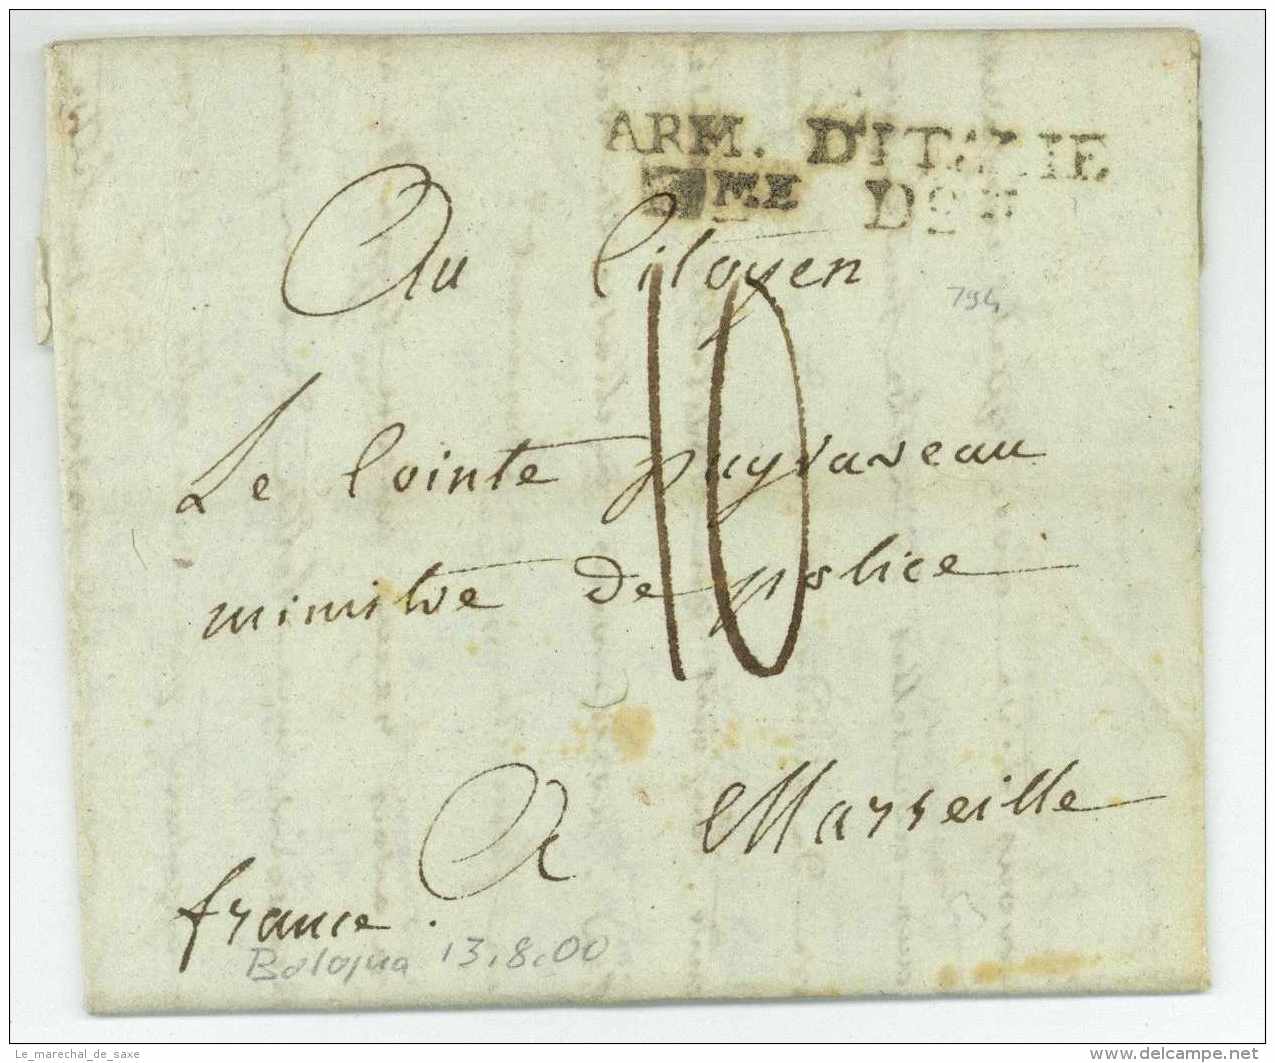 ARM. D'ITALIE
Mᴱ Dᴏɴ
Au Citoyen
794
10
Le Cointe puyraveau
ministre de police
A Marseille
france.
Bologna 13.8.00
Le_marechal_de_saxe
www.delcampe.net